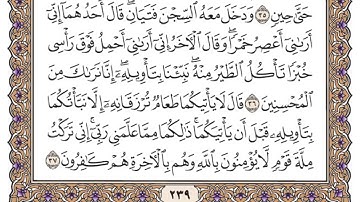 حَتَّىٰ حِينٍ ٣٥ وَدَخَلَ مَعَهُ ٱلسِّجۡنَ فَتَيَانِۖ قَالَ أَحَدُهُمَآ إِنِّيٓ
أَرَىٰنِيٓ أَعۡصِرُ خَمۡرٗاۖ وَقَالَ ٱلۡأٓخَرُ إِنِّيٓ أَرَىٰنِيٓ أَحۡمِلُ فَوۡقَ رَأۡسِي
خُبۡزٗا تَأۡكُلُ ٱلطَّيۡرُ مِنۡهُۖ نَبِّئۡنَا بِتَأۡوِيلِهِۦٓۖ إِنَّا نَرَىٰكَ مِنَ
ٱلۡمُحۡسِنِينَ ٣٦ قَالَ لَا يَأۡتِيكُمَا طَعَامٞ تُرۡزَقَانِهِۦٓ إِلَّا نَبَّأۡتُكُمَا
بِتَأۡوِيلِهِۦ قَبۡلَ أَن يَأۡتِيَكُمَاۚ ذَٰلِكُمَا مِمَّا عَلَّمَنِي رَبِّيٓۚ إِنِّي تَرَكۡتُ
مِلَّةَ قَوۡمٖ لَّا يُؤۡمِنُونَ بِٱللَّهِ وَهُم بِٱلۡأٓخِرَةِ هُمۡ كَٰفِرُونَ ٣٧
٢٣٩